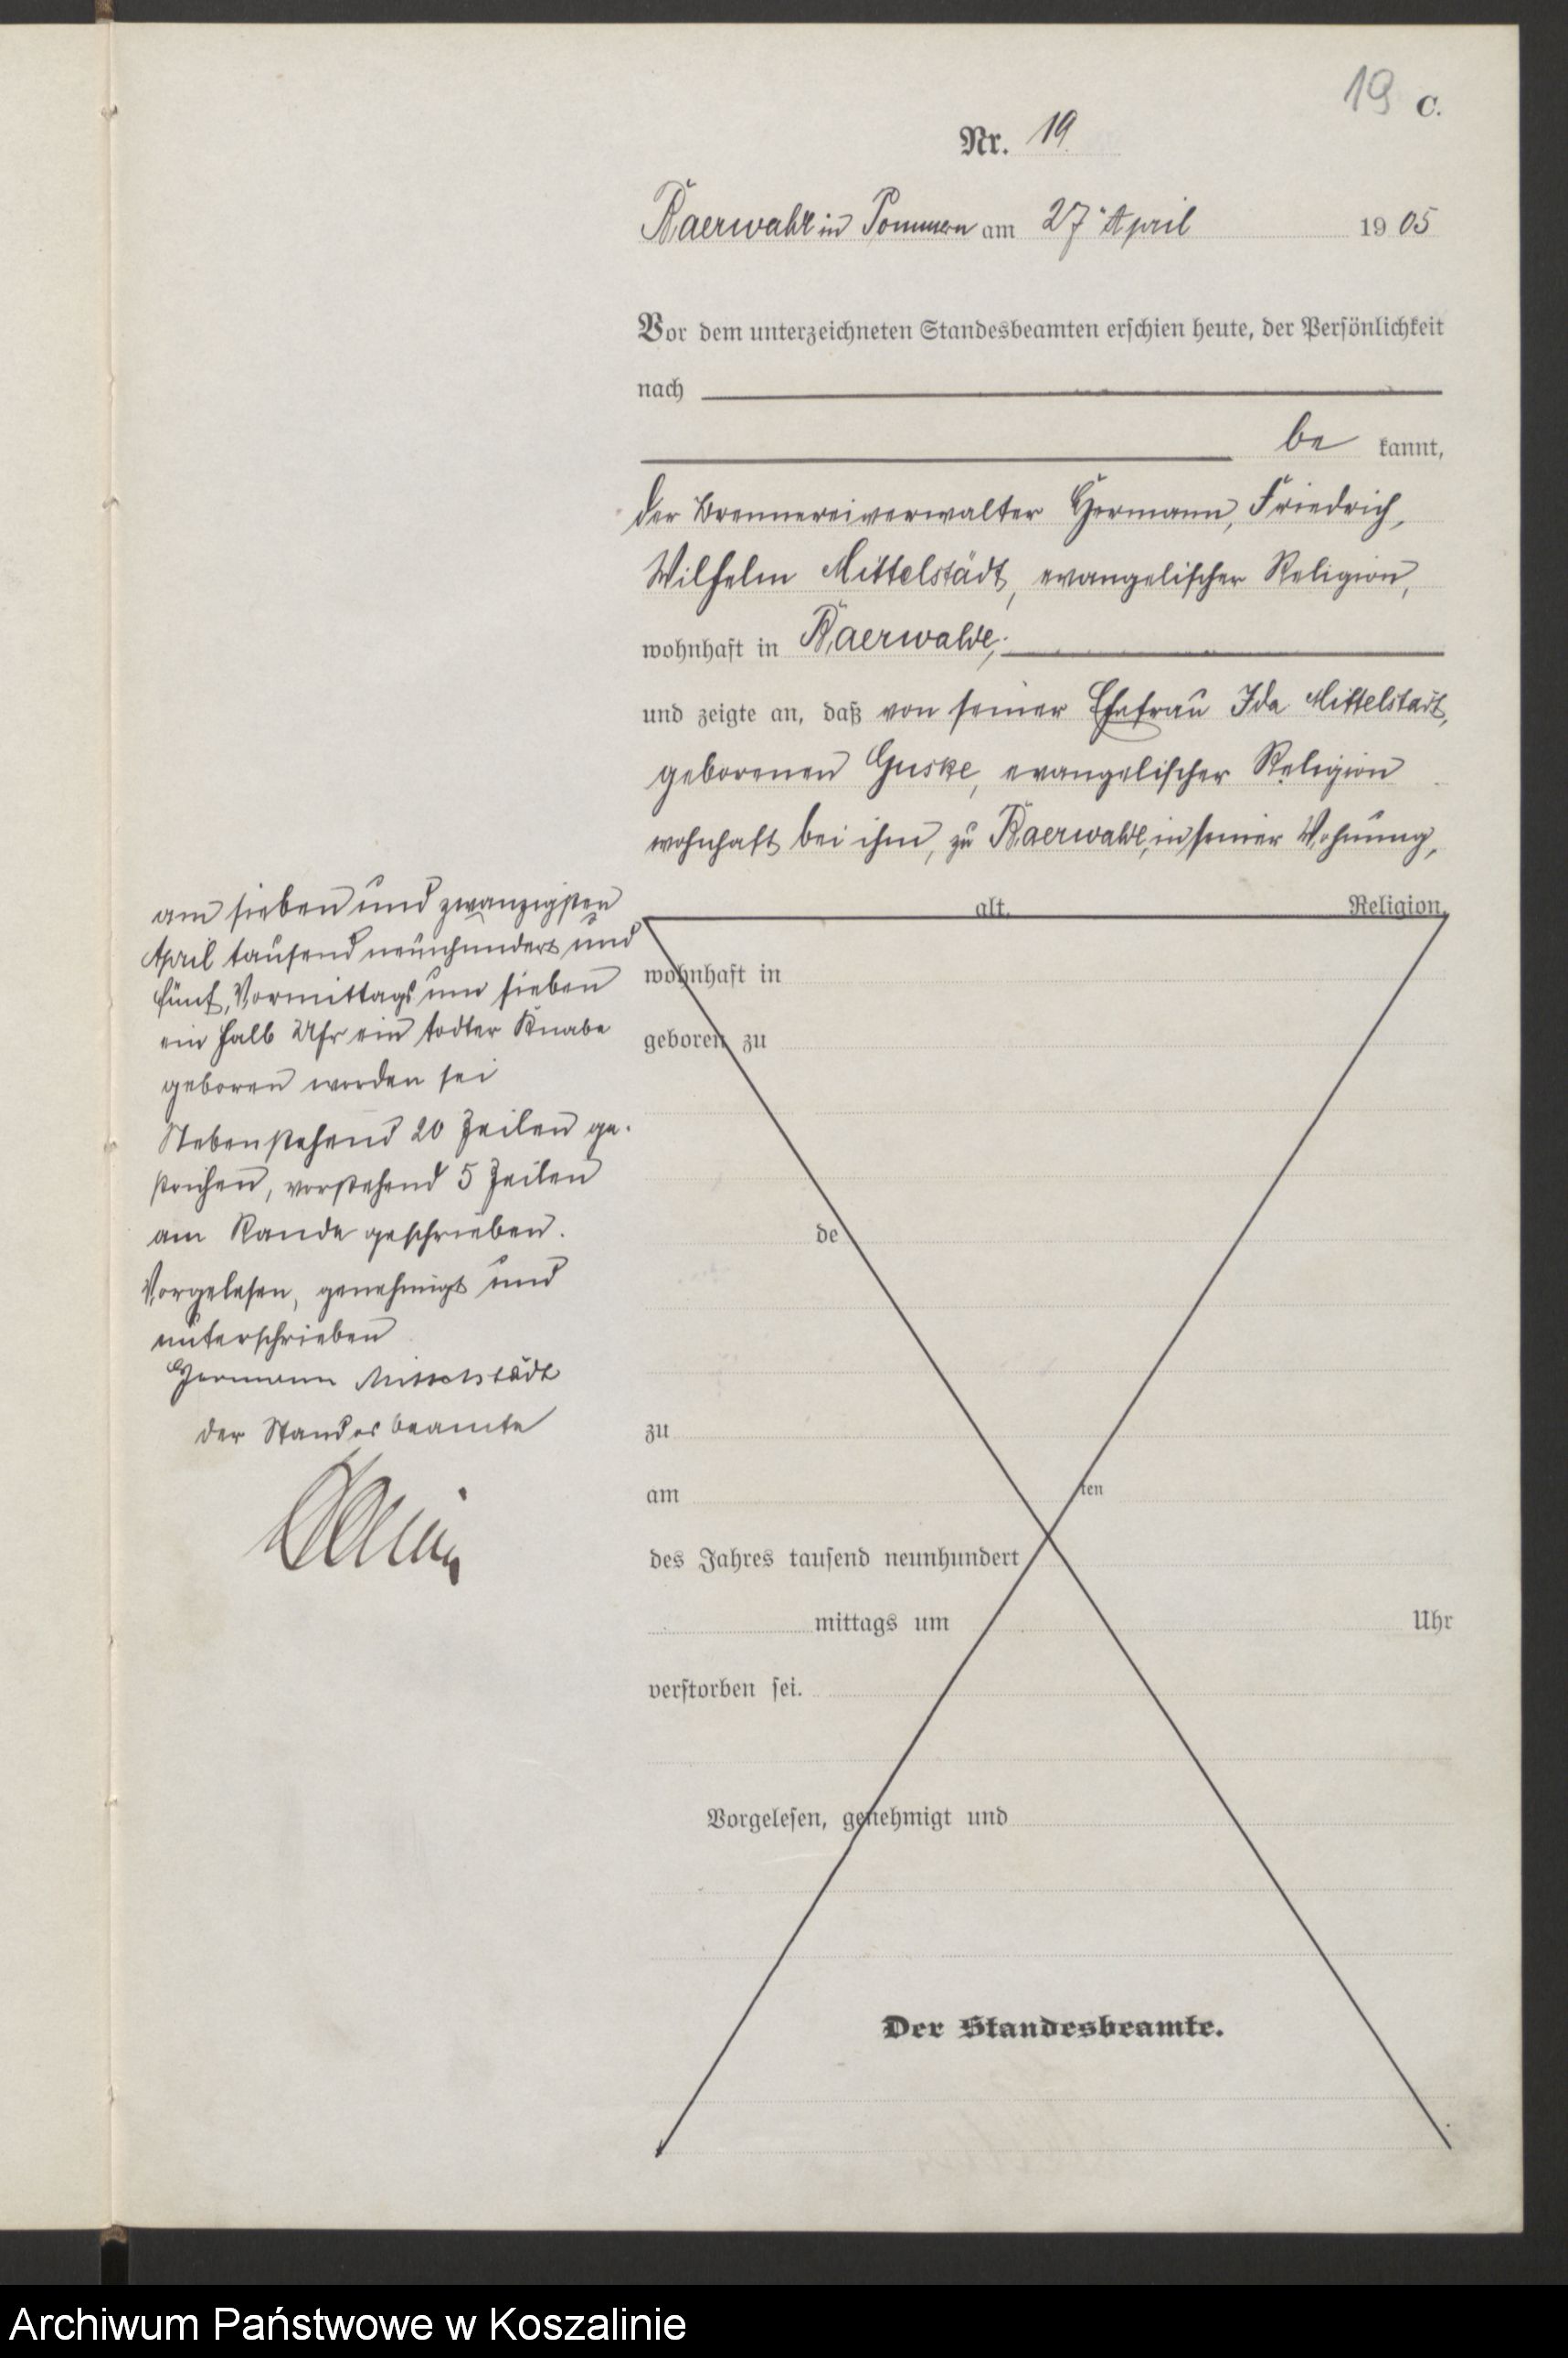 19 C.
Nr. 19
Baerwalde in Pommern am 27. April 1905
Vor dem unterzeichneten Standesbeamten erschien heute, der Persönlichkeit
nach
be kannt,
der Brennereiverwalter Hermann, Friedrich,
Wilhelm Mittelstädt, evangelischer Religion,
wohnhaft in Baerwalde,
und zeigte an, daß von seiner Ehefrau Ida Mittelstädt,
geborenen Guske, evangelischer Religion
wohnhaft bei ihm, zu Baerwalde, in seiner Wohnung,
am sieben und zwanzigsten
April tausend neunhundert und
fünf, Vormittags um sieben
ein halb Uhr ein todter Knabe
geboren worden sei
Nebenstehend 20 Zeilen ge-
strichen, vorstehend 5 Zeilen
am Rande geschrieben.
Vorgelesen, genehmigt und
unterschrieben
Hermann Mittelstädt
der Standesbeamte
alt, Religion,
wohnhaft in
geboren zu
de
zu
am ten
des Jahres tausend neunhundert
mittags um Uhr
verstorben sei.
Vorgelesen, genehmigt und
Der Standesbeamte.
Archiwum Państwowe w Koszalinie